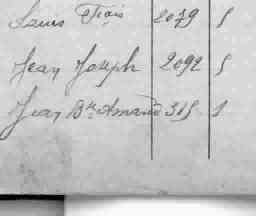 Louis Trois 2079 5
Jean Joseph 2092 5
Jean Bte Amand 315 1